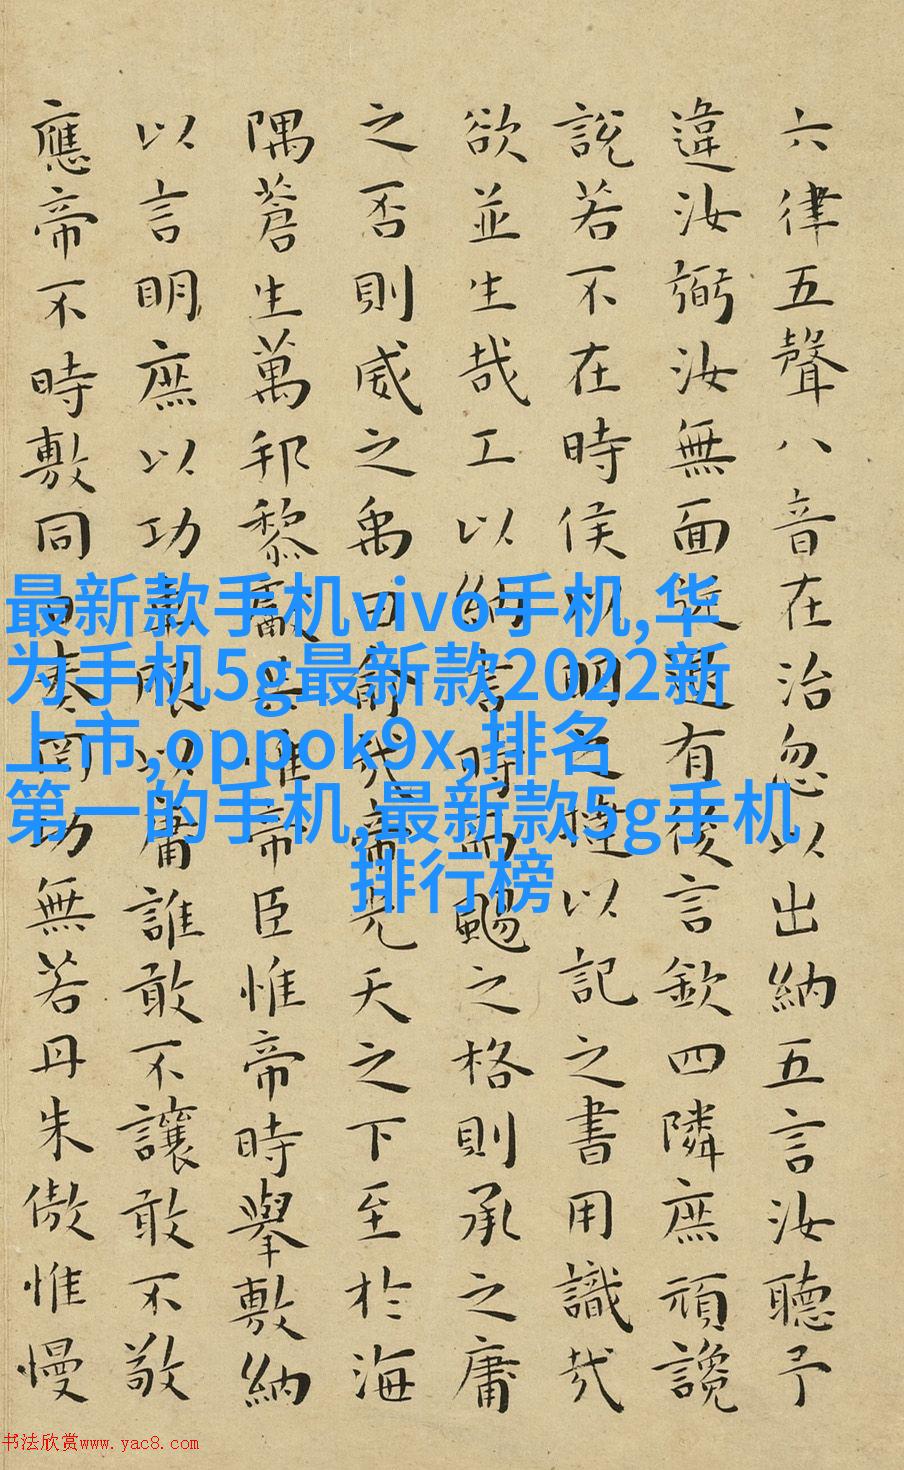 六律五聲八音在治忽以出納五言汝聽予
違汝弼汝無面退有後言欽四隣庶頑讒
說若不在時侯以明之撻以記之書用識哉
欲並生哉工以納言時而颺之格則承之庸
之否則威之禹曰俞哉帝光天之下至於海
隅蒼生萬邦黎獻共惟帝臣惟帝時舉敷納
以言明庶以功車服以庸誰敢不讓敢不敬
應帝不時敷同日奏罔功無若丹朱傲惟慢
最新款手机vivo手机,华
为手机5g最新款2022新
上市,oppok9x,排名
第一的手机,最新款5g手机
排行榜
书法欣赏www.yac8.com